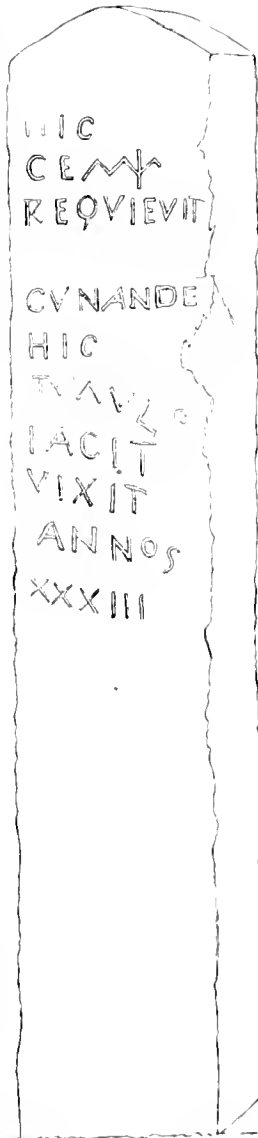 HIC
REQVIEVIT
CVNANDE
HIC
TVMVLO
IACIT
VIXIT
ANNOS
XXXIII